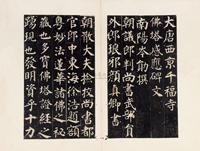 大唐西京千福寺
佛塔感應碑文
南陽岑勛撰
朝議郎判尚書武部員
外郎琅邪顏真卿書
朝散大夫撿挍尚書都
官郎中東海徐浩題額
粵妙法蓮華諸佛之秘
藏也多寶佛塔證經之
踴現也發明資乎十力